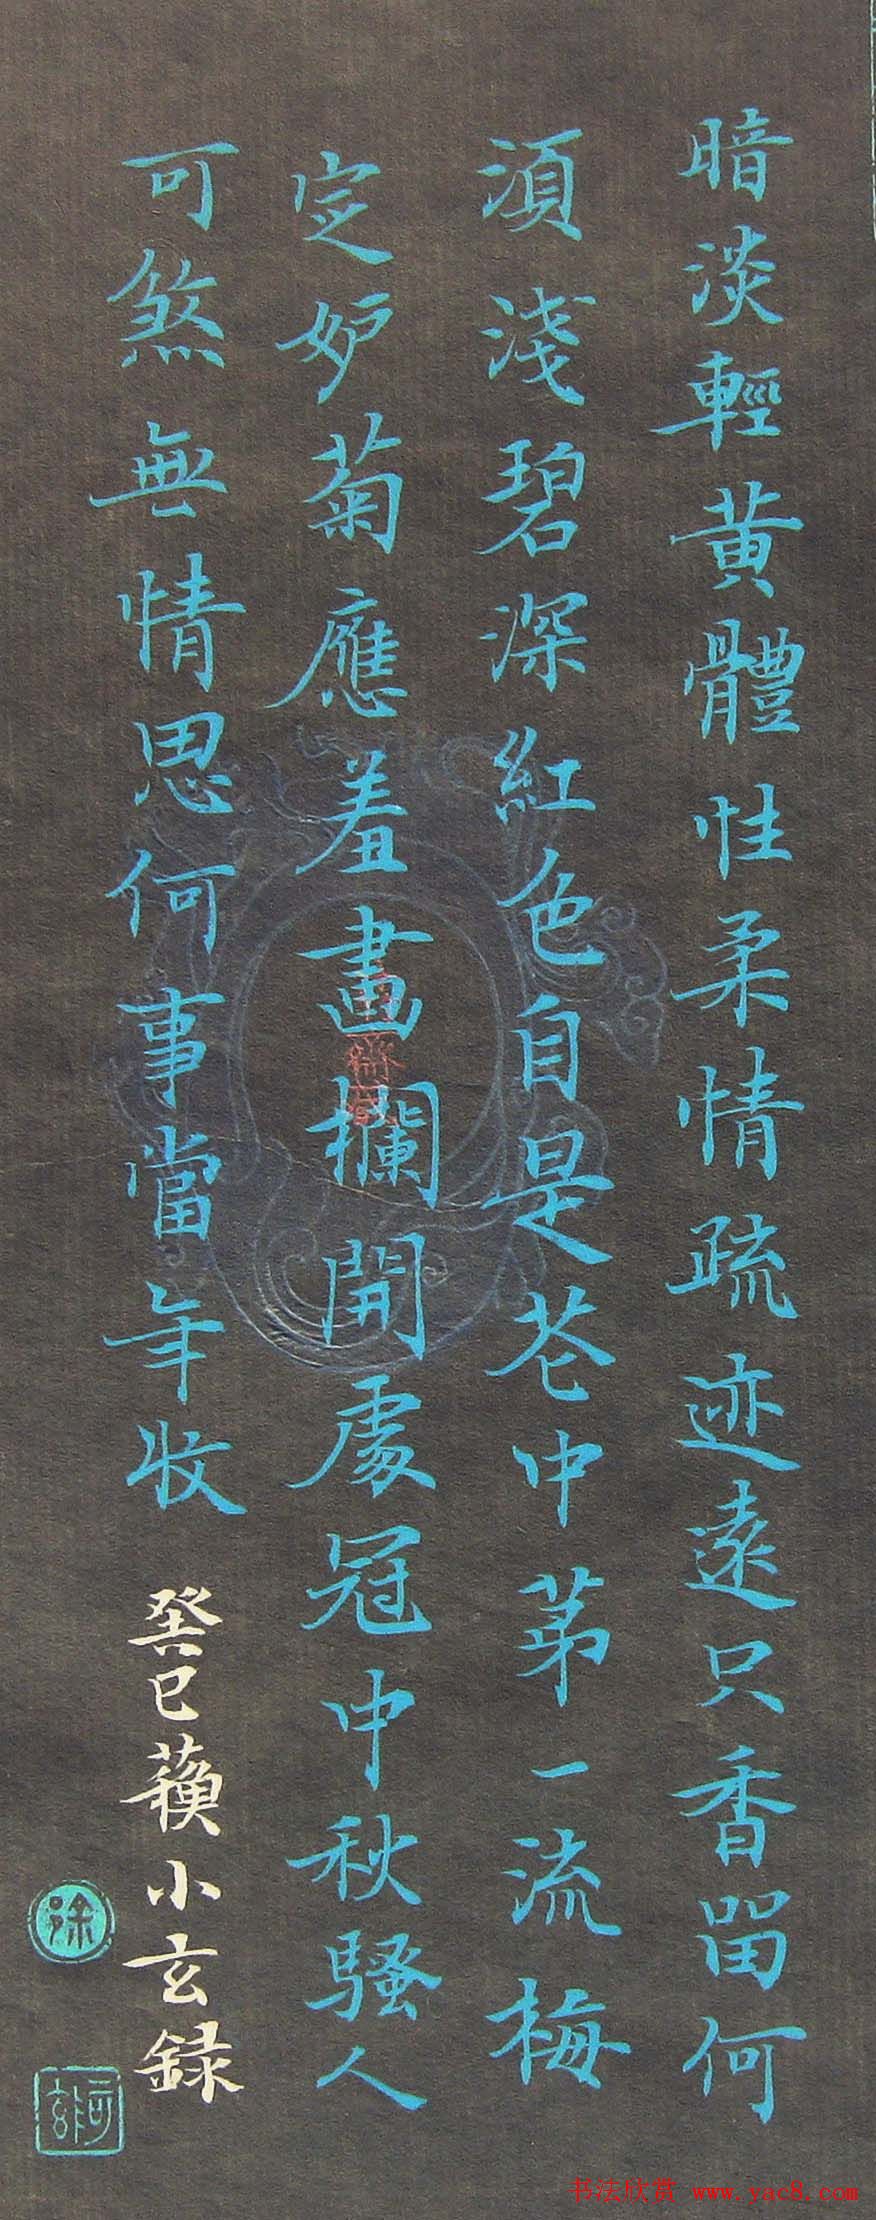 暗淡輕黃體性柔情疏迹遠只香留何
須淺碧深紅色自是花中第一流梅
定妒菊應羞畫欄開處冠中秋騷人
可煞無情思何事當年收
癸巳蘋小玄録
徐
书法欣赏 www.yac8.com